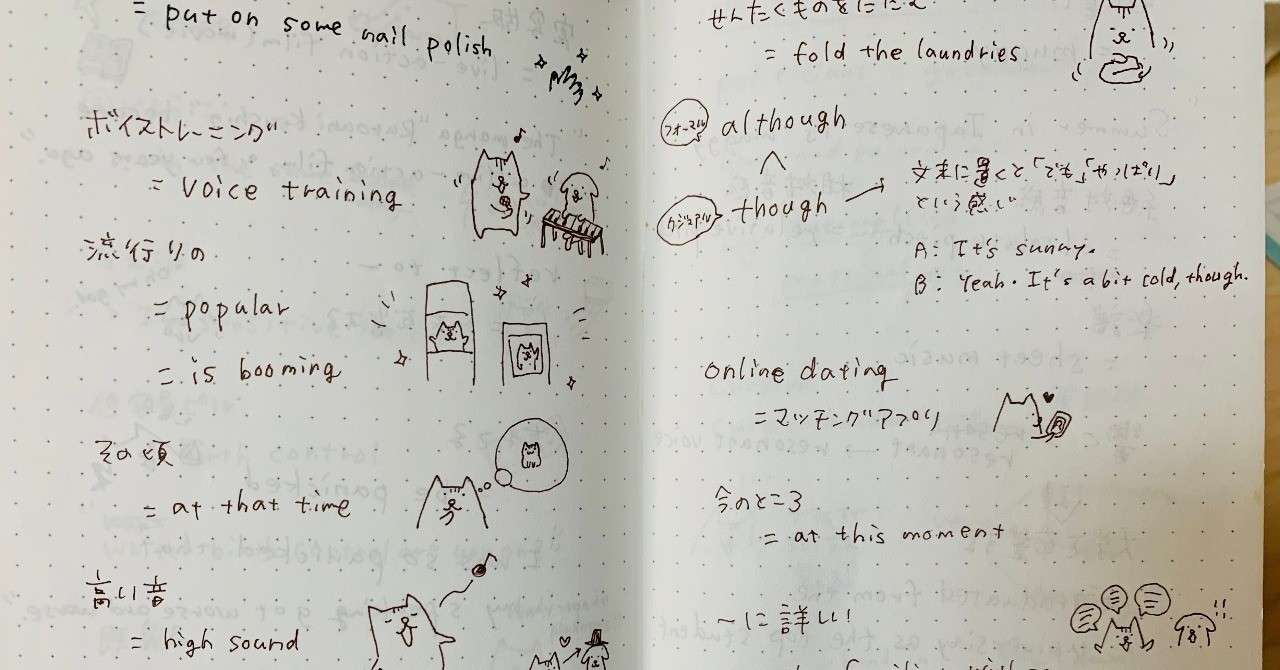 = put on some nail polish
ボイストレーニング
= voice training
流行りの
= popular
= is booming
その頃
= at that time
高い音
= high sound
せんたくものをたたむ
= fold the laundries
フォーマル
although
カジュアル
though
文末に置くと「でも」「やっぱり」
という感じ
A: It's sunny.
B: Yeah. It's a bit cold, though.
online dating
= マッチングアプリ
今のところ
= at this moment
~に詳しい